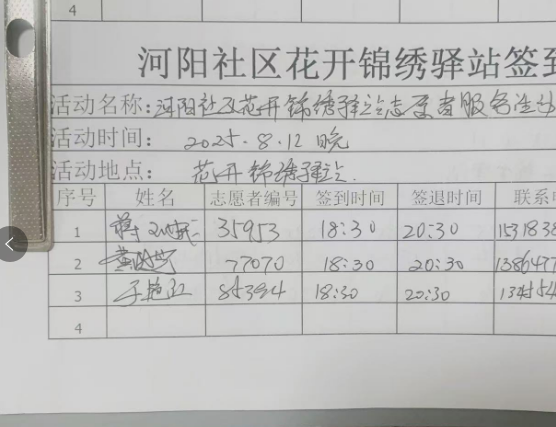 4
河阳社区花开锦绣驿站签到
活动名称：河阳社区花开锦绣驿站志愿者服务活动
活动时间： 2025.8.12 晚
活动地点： 花开锦绣驿站.
序号 姓名 志愿者编号 签到时间 签退时间 联系电
1 35953 18:30 20:30 1531838
2 77070 18:30 20:30 1386477
3 于艳红 85394 18:30 20:30
4